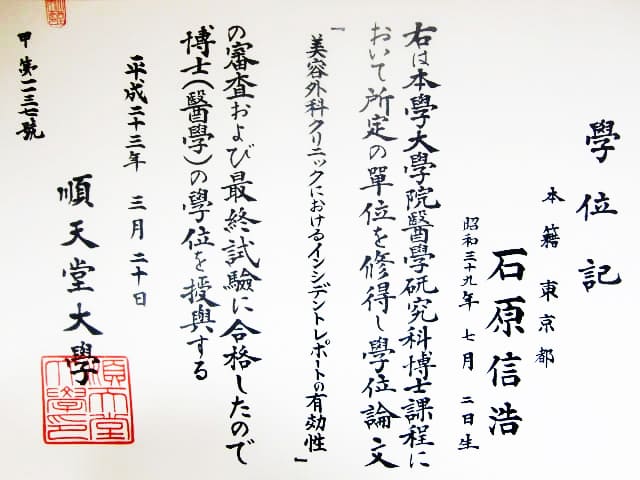 學位記
本籍 東京都
石原信浩
昭和三十九年 七月 二日生
右は本學大學院醫學研究科博士課程に
おいて所定の單位を修得し學位論文
「美容外科クリニックにおけるインシデントレポートの有効性」
の審査および最終試驗に合格したので
博士(醫學)の學位を授與する
平成二十三年 三月 二十日
順天堂大學
順天堂大學印
甲第一二三七號